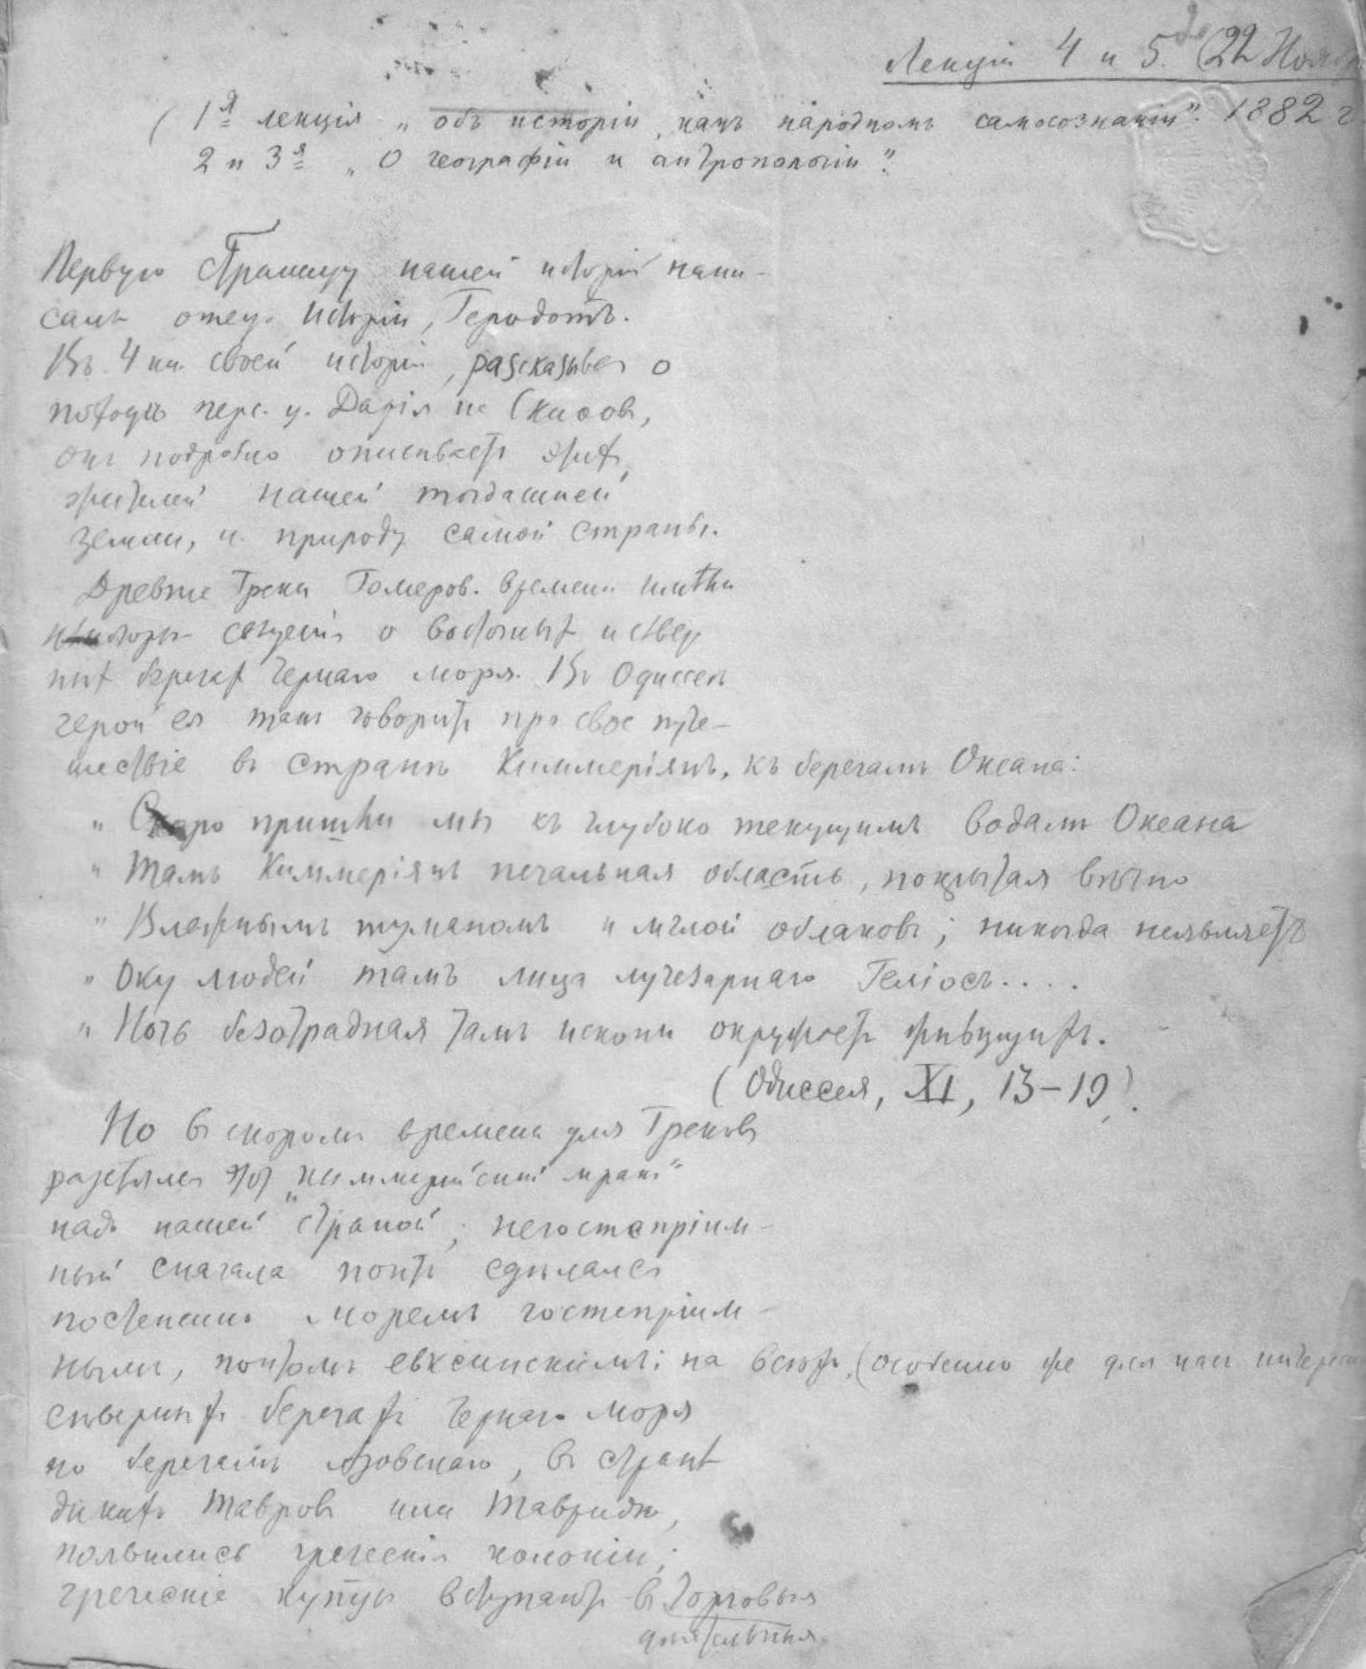 Лекціи 4 и 5. (22 Нояб
(1я лекція „объ исторіи, какъ народномъ самосознаніи". 1882 г.
2 и 3я „О географіи и антропологіи".
Первую страницу нашей исторіи напи-
салъ отецъ исторіи, Геродотъ.
Въ 4 кн. своей исторіи, разсказывая о
походѣ перс. ц. Дарія на Скиѳовъ,
онъ подробно описываетъ
жителей нашей тогдашней
земли, и природу самой страны.
Древніе Греки Гомеров. времени имѣли
нѣкоторыя свѣденія о восточныхъ и сѣвер
ныхъ берегахъ Чернаго моря. Въ Одиссеѣ
герой ея такъ говоритъ про свое путе-
шествіе въ странѣ Киммеріянъ, къ берегамъ Океана:
„ Скоро пришли мы къ глубоко текущимъ водамъ Океана
„ Тамъ Киммеріянъ печальная область, покрытая вѣчно
„ Влажнымъ туманомъ и мглой облаковъ; никогда неявляетъ
„ Оку людей тамъ лица лучезарнаго Геліосъ....
„ Ночь безотрадная тамъ искони окружаетъ живущихъ.
(Одиссея, XI, 13-19).
Но въ скоромъ времени для Грековъ
разсѣялся этотъ „киммерійскій мракъ"
надъ нашей страной; негостепріим-
ный сначала понтъ сдѣлался
постепенно моремъ гостепріим-
нымъ, понтомъ евксинскимъ: на всѣхъ, (особенно же для насъ интерес
сѣверныхъ берегахъ Чернаго моря
по берегамъ Азовскаго, въ странѣ
дикихъ Тавровъ или Тавридѣ,
появились греческія колоніи;
греческіе купцы вступаютъ въ торговыя